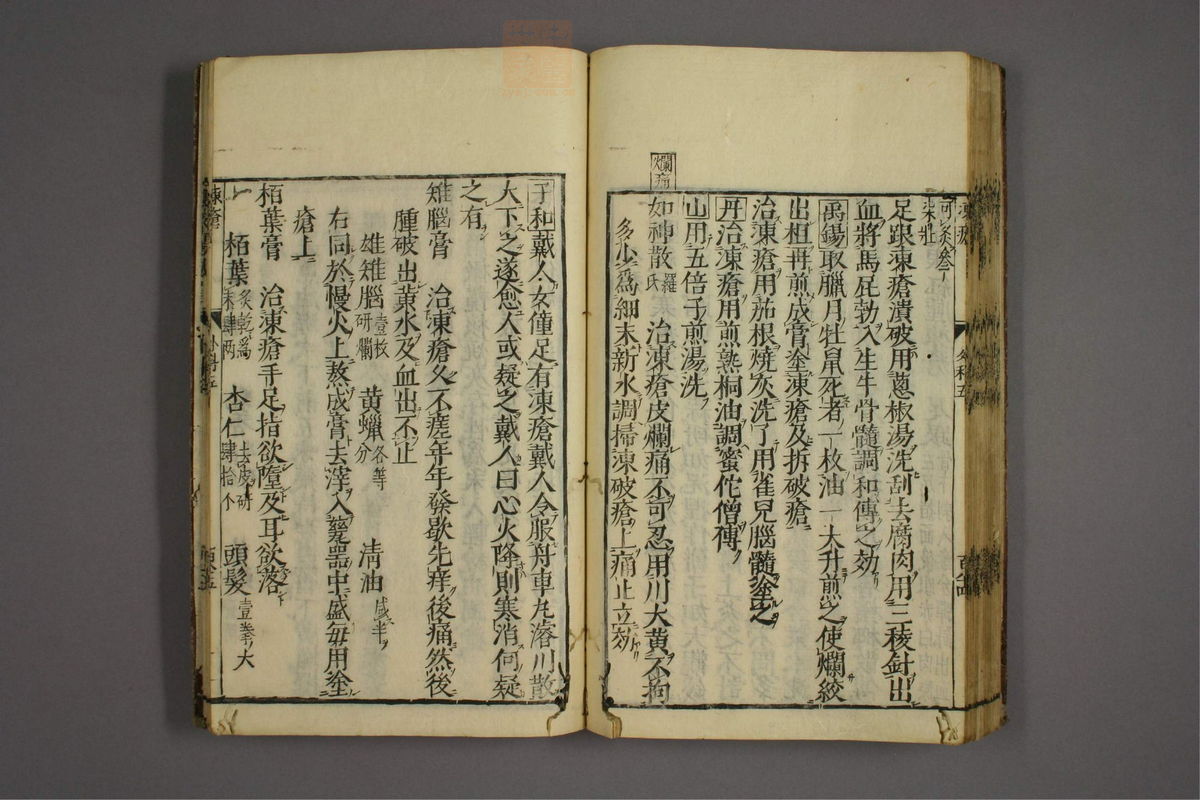 爛痛
足跟凍瘡潰破用蔥椒湯洗刮去腐肉用三稜針出
血將馬屁勃入生牛骨髓調和傅之効
禹錫取臘月牡鼠死者一枚油一大升煎之使爛絞
出柤再煎成膏塗凍瘡及拆破瘡
治凍瘡用茄根燒灰洗了用雀兒腦髓塗之
丹治凍瘡用煎熟桐油調蜜佗僧傅
山用五倍子煎湯洗
如神散羅氏 治凍瘡皮爛痛不可忍用川大黃不拘
多少爲細末新水調掃凍破瘡上痛止立効
子和戴人女僮足有凍瘡戴人令服舟車丸濬川散
大下之遂愈人或疑之戴人曰心火降則寒消何疑
之有
雉腦膏 治凍瘡久不瘥年年發歇先痒後痛然後
腫破出黃水及血出不止
雄雉腦壹枚研爛 黃蠟各等分 清油減半
右同於慢火上熬成膏去滓入甆器中盛每用塗
瘡上
栢葉膏 治凍瘡手足指欲墮及耳欲落
栢葉炙乾爲末肆兩 杏仁去皮研肆拾个 頭髮壹拳大
凍瘡